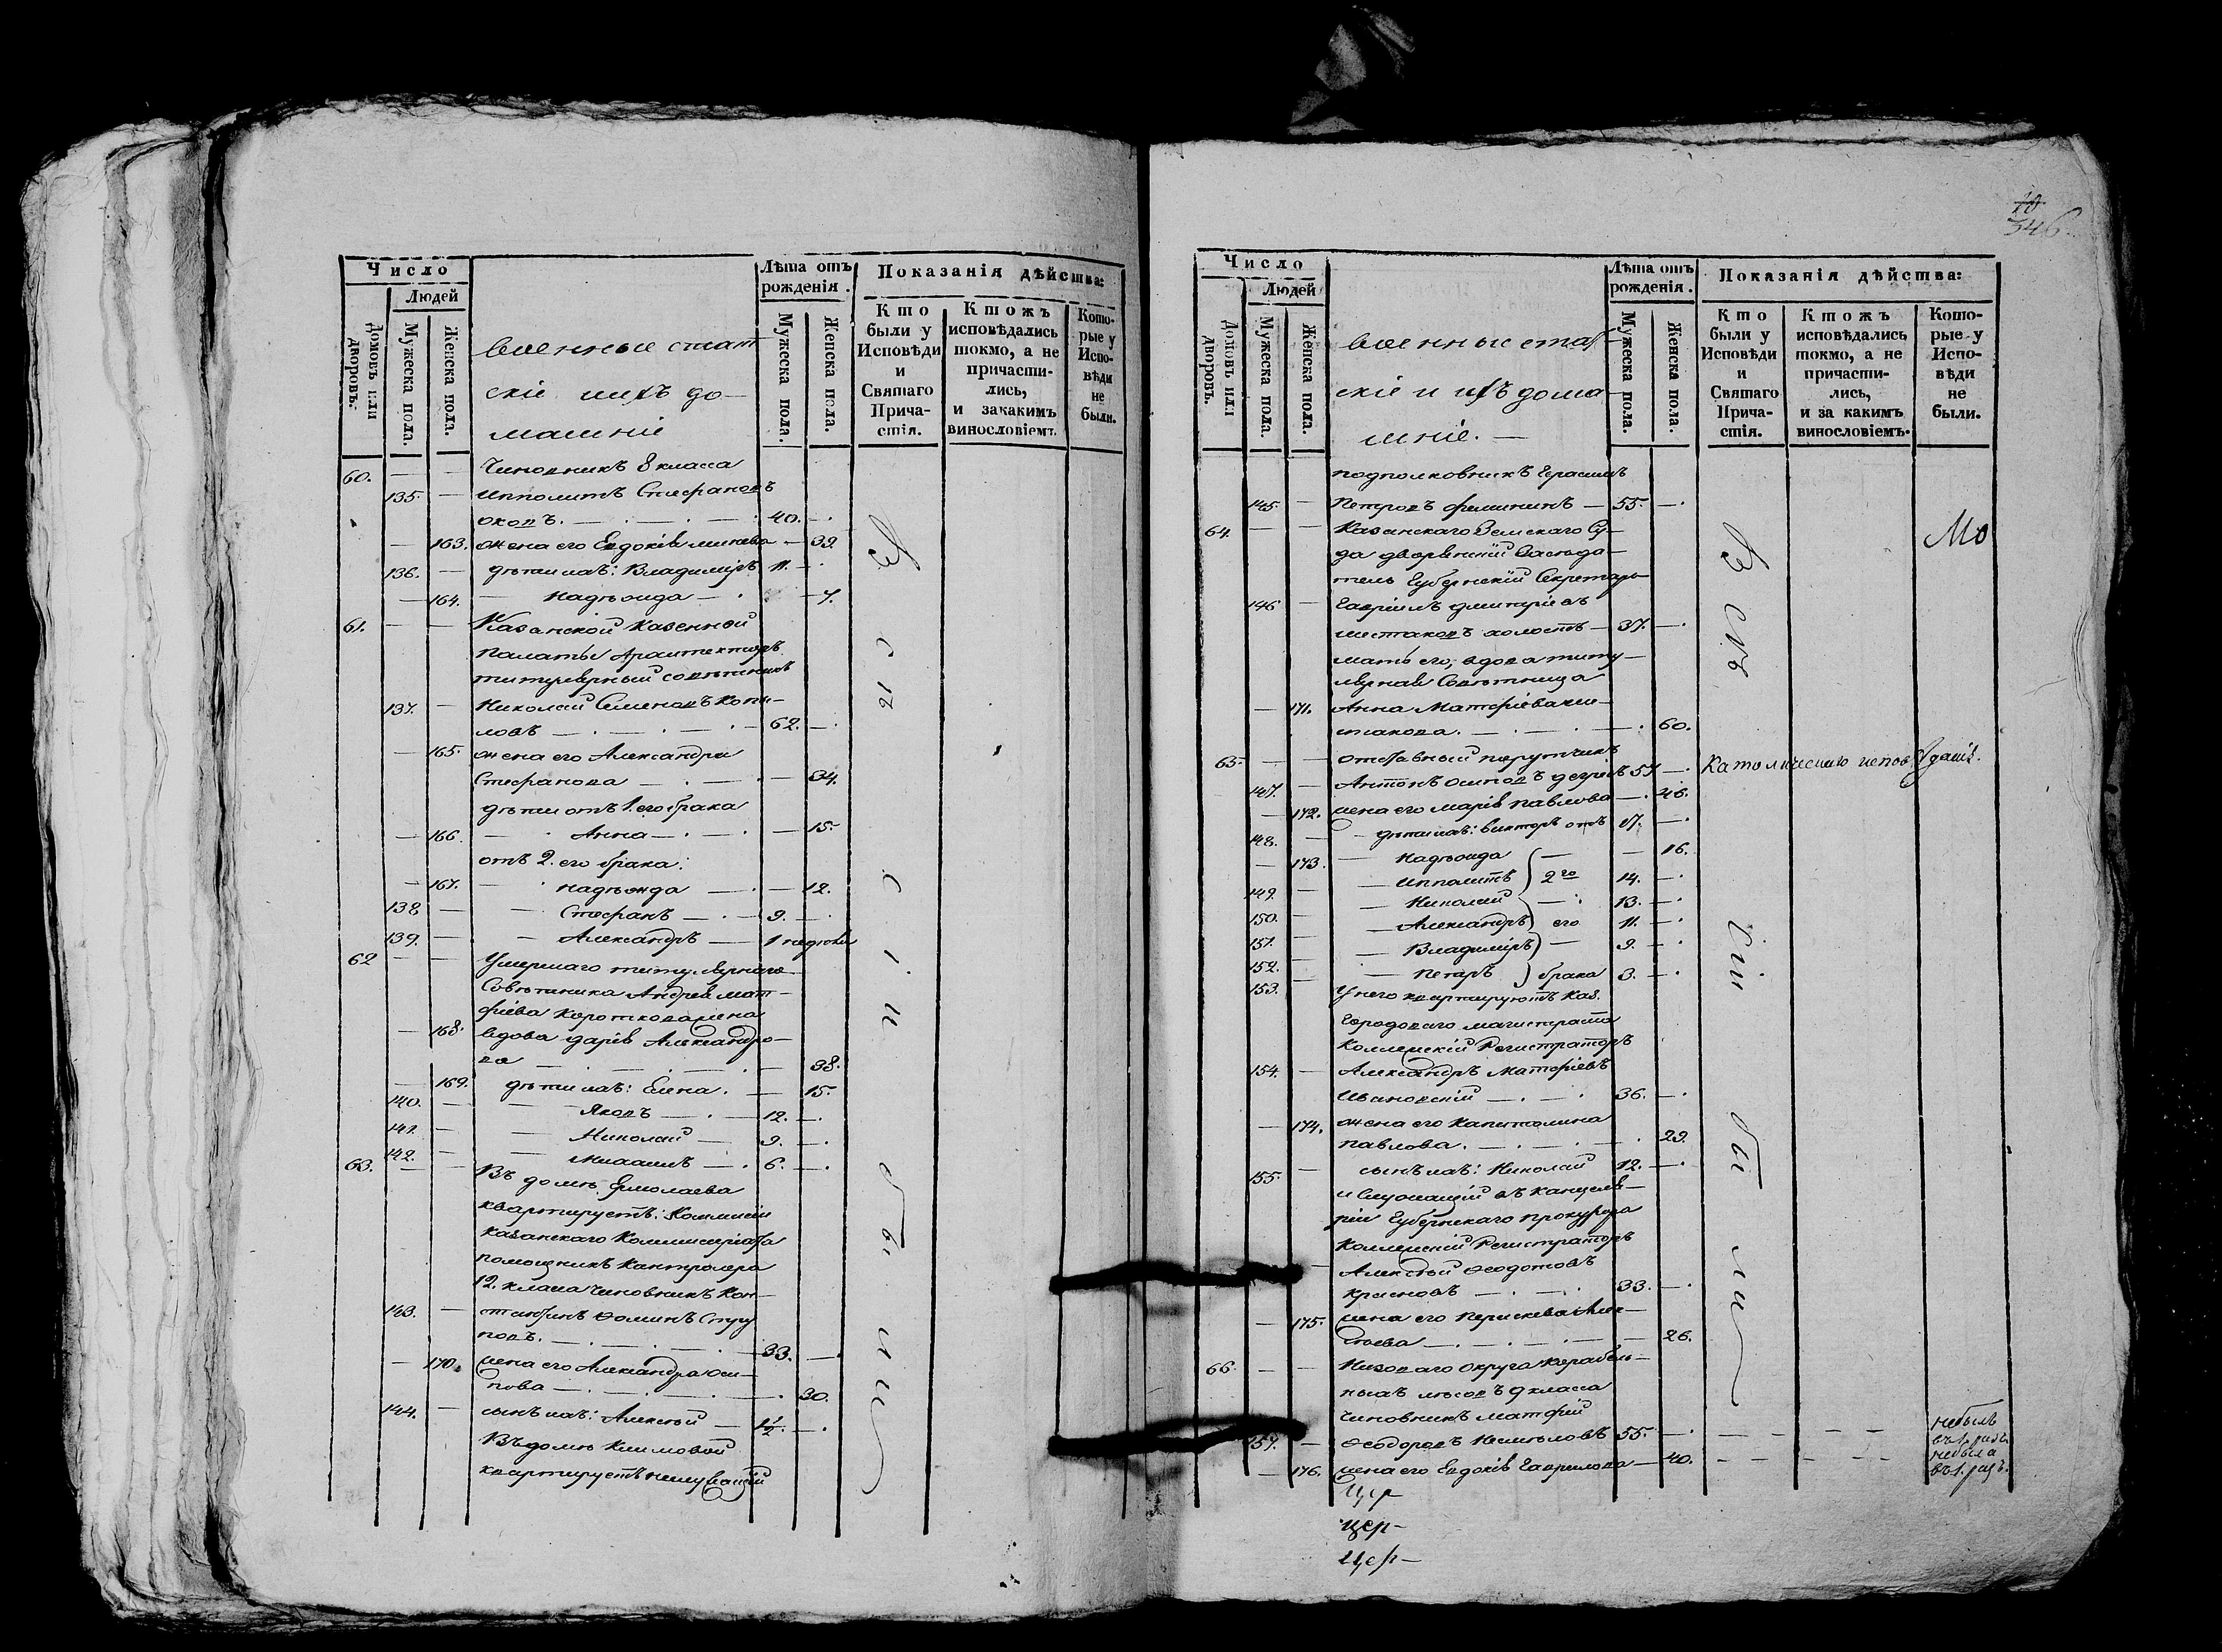 Число
Людей
Домовъ или дворовъ.
Мужеска пола.
Женска пола.
военные стат
скіе ихъ до-
машніе
Лѣта отъ рожденія.
Мужеска пола.
Женска пола.
Показанія дѣйства:
Кто были у Исповѣди и Святаго Причастія.
Ктожъ исповѣдались токмо, а не причастились, и закакимъ винословіемъ.
Которые у Исповѣди не были.
60. — — Чиновникъ 8 класса
135. — Ипполитъ Стефановъ
40. —
— 163. жена его Евдокія — 39.
136. — дѣти ихъ: Владиміръ 11. —
— 164. — Надежда — 7.
61. — — Казанской Казенной
Палаты Архитекторъ
титулярный совѣтникъ
137. — Николай Семеновъ Копы-
ловъ — 62. —
— 165. жена его Александра
Стефанова — 34.
дѣти отъ 1. его брака
— 166. — Анна — 15.
отъ 2. его брака:
— 167. — Надежда — 12.
138 — — Стефанъ — 9. —
139. — — Александръ — 1 недели
62 — — Умершаго титулярнаго
Совѣтника Андрея Мат-
фіева жена
— 168. вдова Дарія Александро-
ва — 38.
— 169. дѣти ихъ: Елена. — 15.
140. — — Яковъ — 12. —
141. — — Николай — 9. —
142. — — Михаилъ — 6. —
63. — — Въ домѣ Ермолаева
квартируетъ: Коммисіи
Казанскаго Коммисаріата
помощникъ Контролера
12. класа Чиновникъ Кон-
143. — стантинъ Ѳоминъ Сту
повъ. — 33. —
— 170. жена его Александра Оси-
пова — 30.
144. — сынъ ихъ: Алексѣй — 1½. —
Въ домѣ Климовой
квартируетъ неслужащій
въ
с
в
і
и
были
10
346
Число
Людей
Домовъ или дворовъ.
Мужеска пола.
Женска пола.
военные стат-
скіе и ихъ дома-
шніе. —
Лѣта отъ рожденія.
Мужеска пола.
Женска пола.
Показанія дѣйства:
Кто были у Исповѣди и Святаго Причастія.
Ктожъ исповѣдались токмо, а не причастились, и за какимъ винословіемъ.
Которые у Исповѣди не были.
подполковникъ Герасимъ
145. — Петровъ — 55. —
64. — — Казанскаго Земскаго Су-
да дворянскій Засѣда-
тель Губернскій Секретарь
146 — Гавріилъ Дмитріевъ
Шестаковъ холостъ — 37. —
мать его, вдова титу-
лярная Совѣтница
— 171. Анна Матфіева Ше-
стакова. — 60.
65. — — отставный порутчикъ
147. — Антонъ Осиповъ 57 —
— 172. жена его Марія Павлова — 46.
148. — дѣти ихъ: Викторъ отъ 17. —
— 173. — Надежда — 16.
149. — — Ипполитъ 2го 14. —
150. — — Николай — 13. —
151. — — Александръ его 11. —
152. — — Владиміръ — 9. —
153. — — Петръ брака 3. —
Католическаго исповѣданія.
У него квартируютъ Каз.
Городоваго магистрата
Коллежскій Регистраторъ
154. — Александръ Матфіевъ
Ивановскій — 36. —
— 174. жена его Капитолина
Павлова. — 29.
155. — сынъ ихъ: Николай 12. —
и Служащій въ канцеля-
ріи Губернскаго прокурора
Коллежскій Регистраторъ
Алексѣй Ѳеодотовъ
Красновъ — 33. —
— 175. жена его Параскева Алек-
сѣева — 26.
66. — — Низоваго округа Корабель-
ныхъ лѣсовъ 9 класса
Чиновникъ Матфій
157. — Ѳеодоровъ 55. — небылъ въ 1. разъ.
— 176. жена его Евдокія Гаврилова — 40. небыла въ 1. разъ.
Цер
Цер-
Цер-